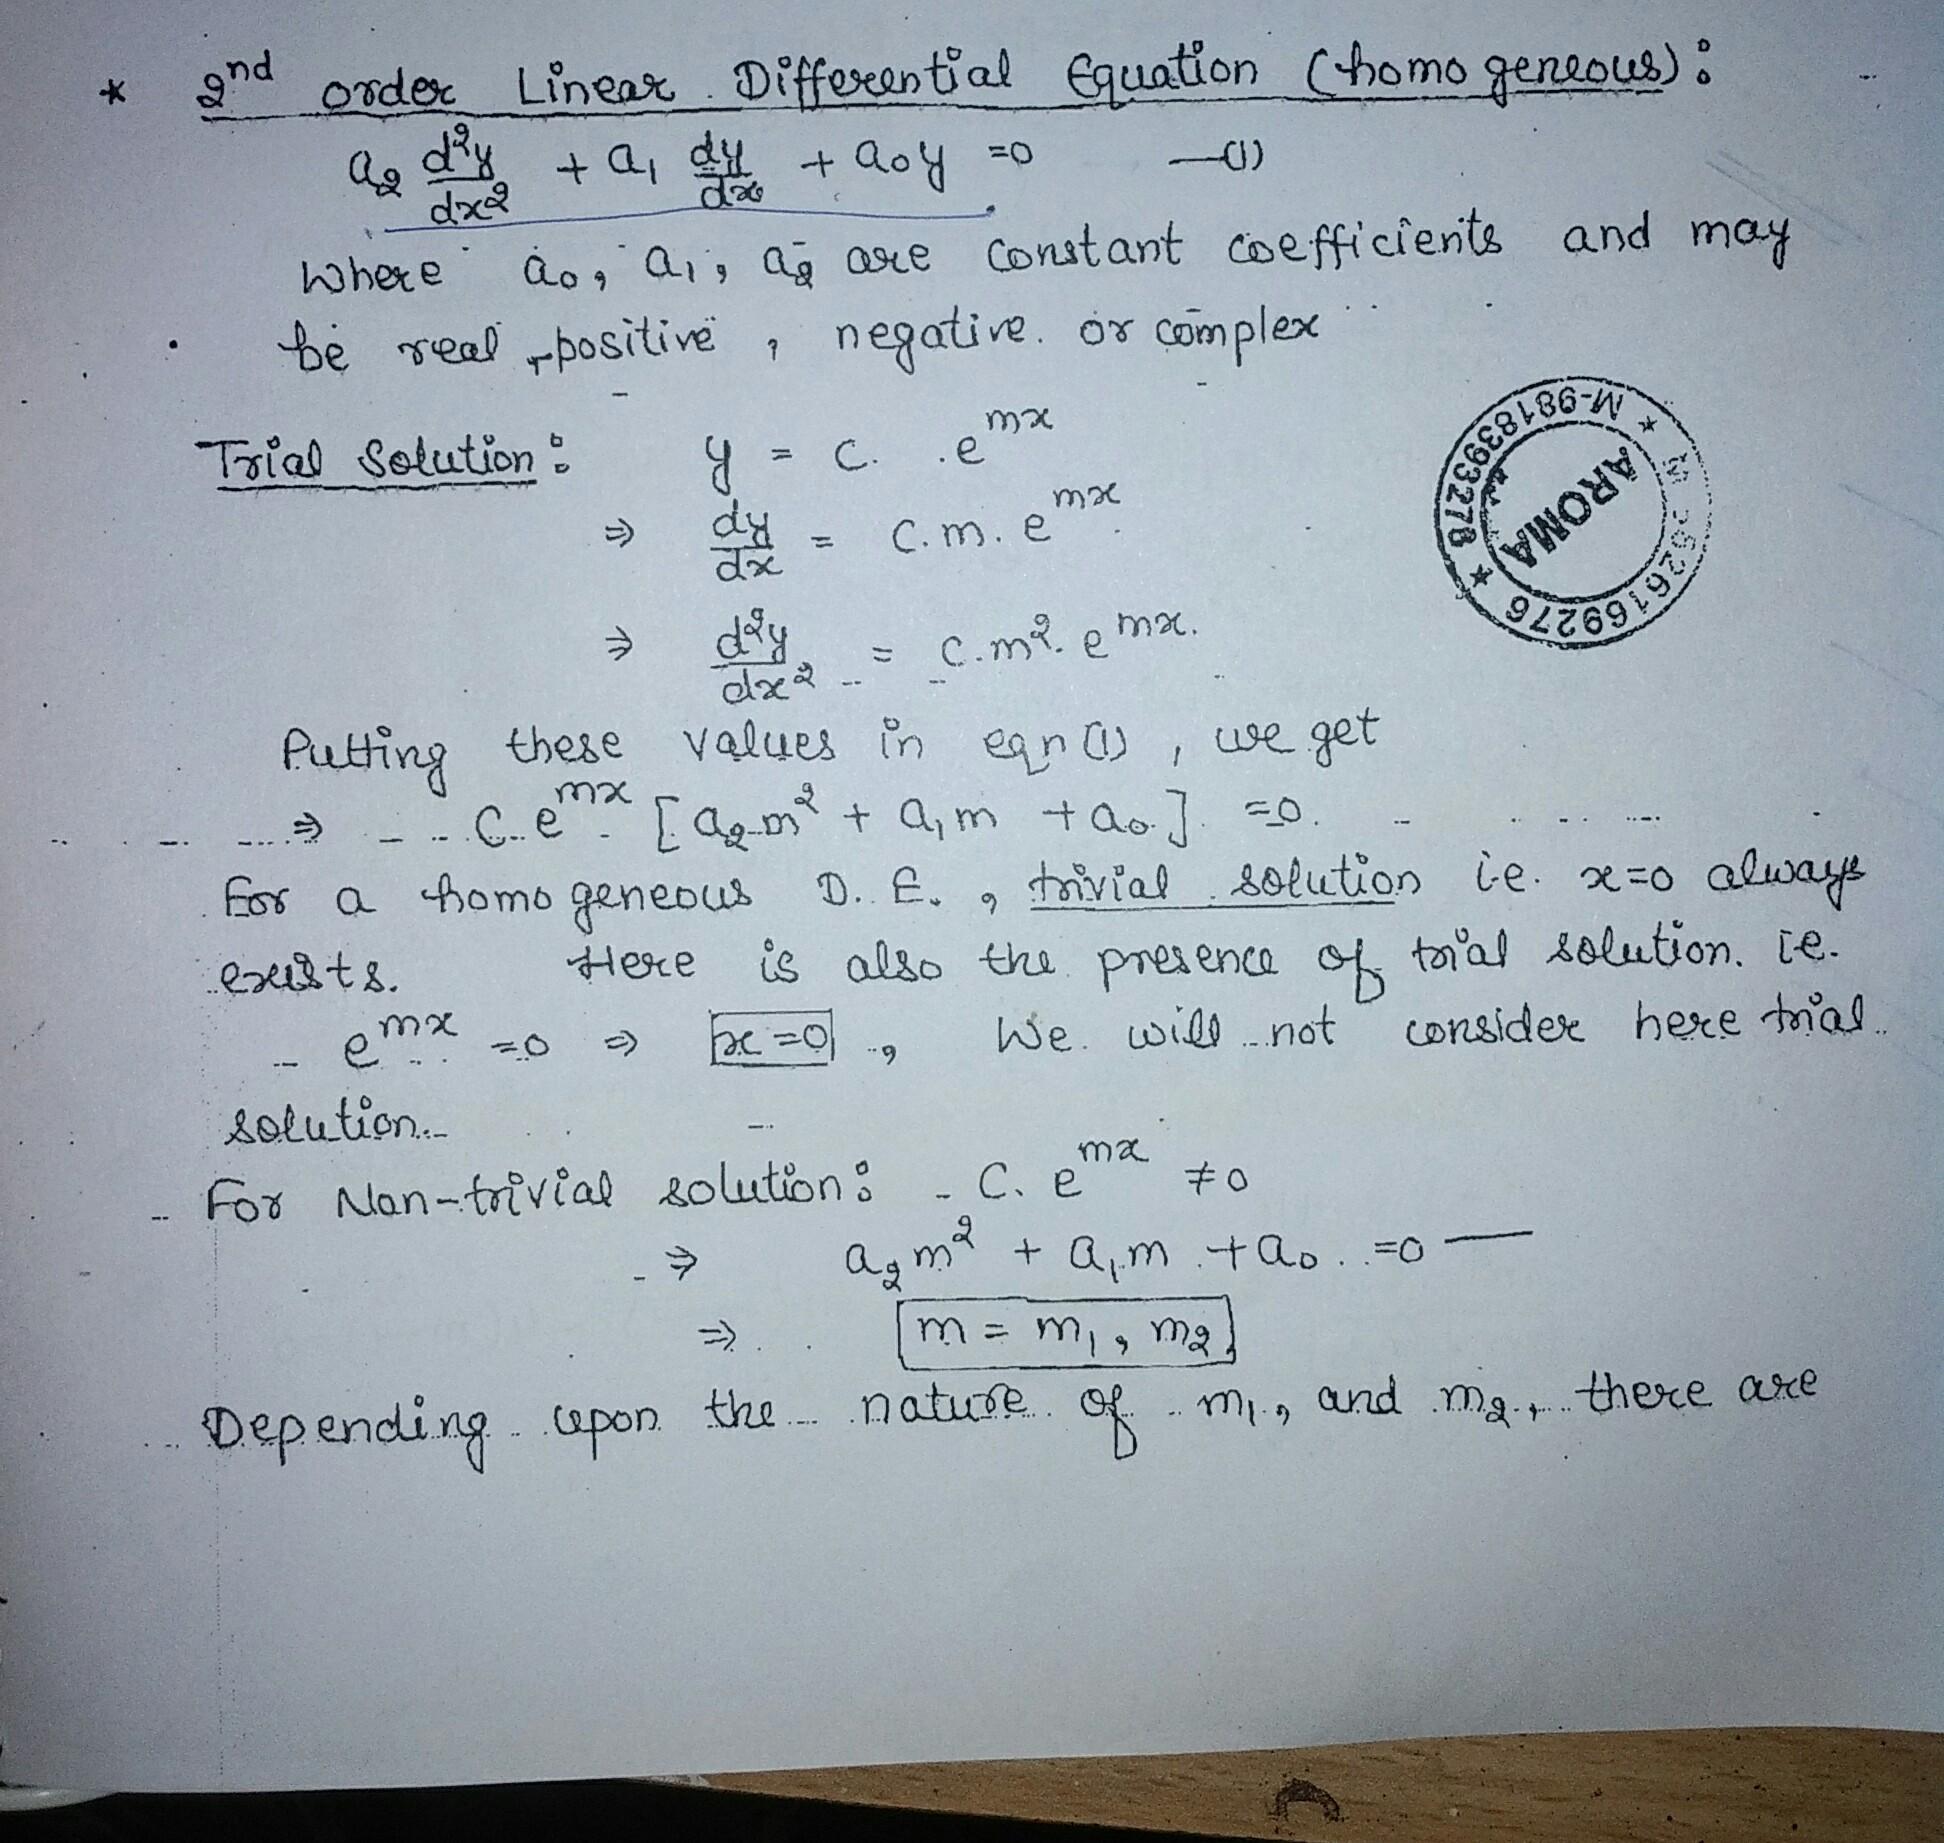 * 2nd order Linear Differential Equation (homogeneous):
a₂ d²y/dx² + a₁ dy/dx + a₀y =0 —(1)
Where a₀, a₁, a₂ are constant coefficients and may
be real, positive, negative. or complex
Trial Solution: y = C. e^mx
⇒ dy/dx = C.m. e^mx
⇒ d²y/dx² = C.m². e^mx.
Putting these values in eqn (1), we get
⇒ C.e^mx [a₂m² + a₁m + a₀] =0.
For a homogeneous D.E., trivial solution i.e. x=0 always
exists. Here is also the presence of trial solution. ie.
e^mx =0 ⇒ x=0, We will not consider here trial
solution.
For Non-trivial solution: C. e^mx ≠0
⇒ a₂m² + a₁m + a₀ =0 —
⇒ m = m₁, m₂
Depending upon the nature of m₁, and m₂, there are
AROMA
* M-9818393276 *
6169276